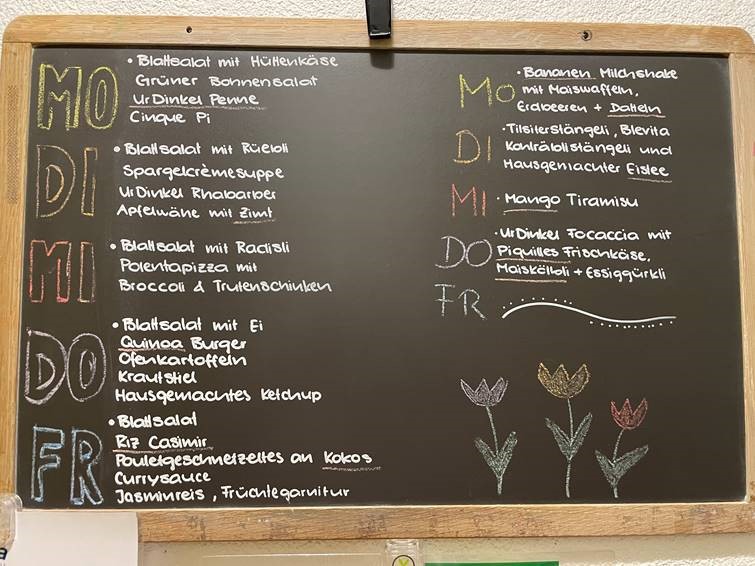 MO
• Blattsalat mit Hüttenkäse
Grüner Bohnensalat
UrDinkel Penne
Cinque Pi
DI
• Blattsalat mit Rüebli
Spargelcrèmesuppe
UrDinkel Rhabarber
Apfelwähe mit Zimt
MI
• Blattsalat mit Radisli
Polentapizza mit
Broccoli & Trutenschinken
DO
• Blattsalat mit Ei
Quinoa Burger
Ofenkartoffeln
Krautstiel
Hausgemachtes Ketchup
FR
• Blattsalat
Riz Casimir
Pouletgeschnetzeltes an Kokos
Currysauce
Jasminreis, Früchtegarnitur
Mo
• Bananen Milchshake
mit Maiswaffeln,
Erdbeeren + Datteln
DI
• Tilsiterstängeli, Blevita
Kohlräblistängeli und
Hausgemachter Eistee
MI
• Mango Tiramisu
DO
• UrDinkel Focaccia mit
Piquilles Frischkäse,
Maiskölbli + Essiggürkli
FR